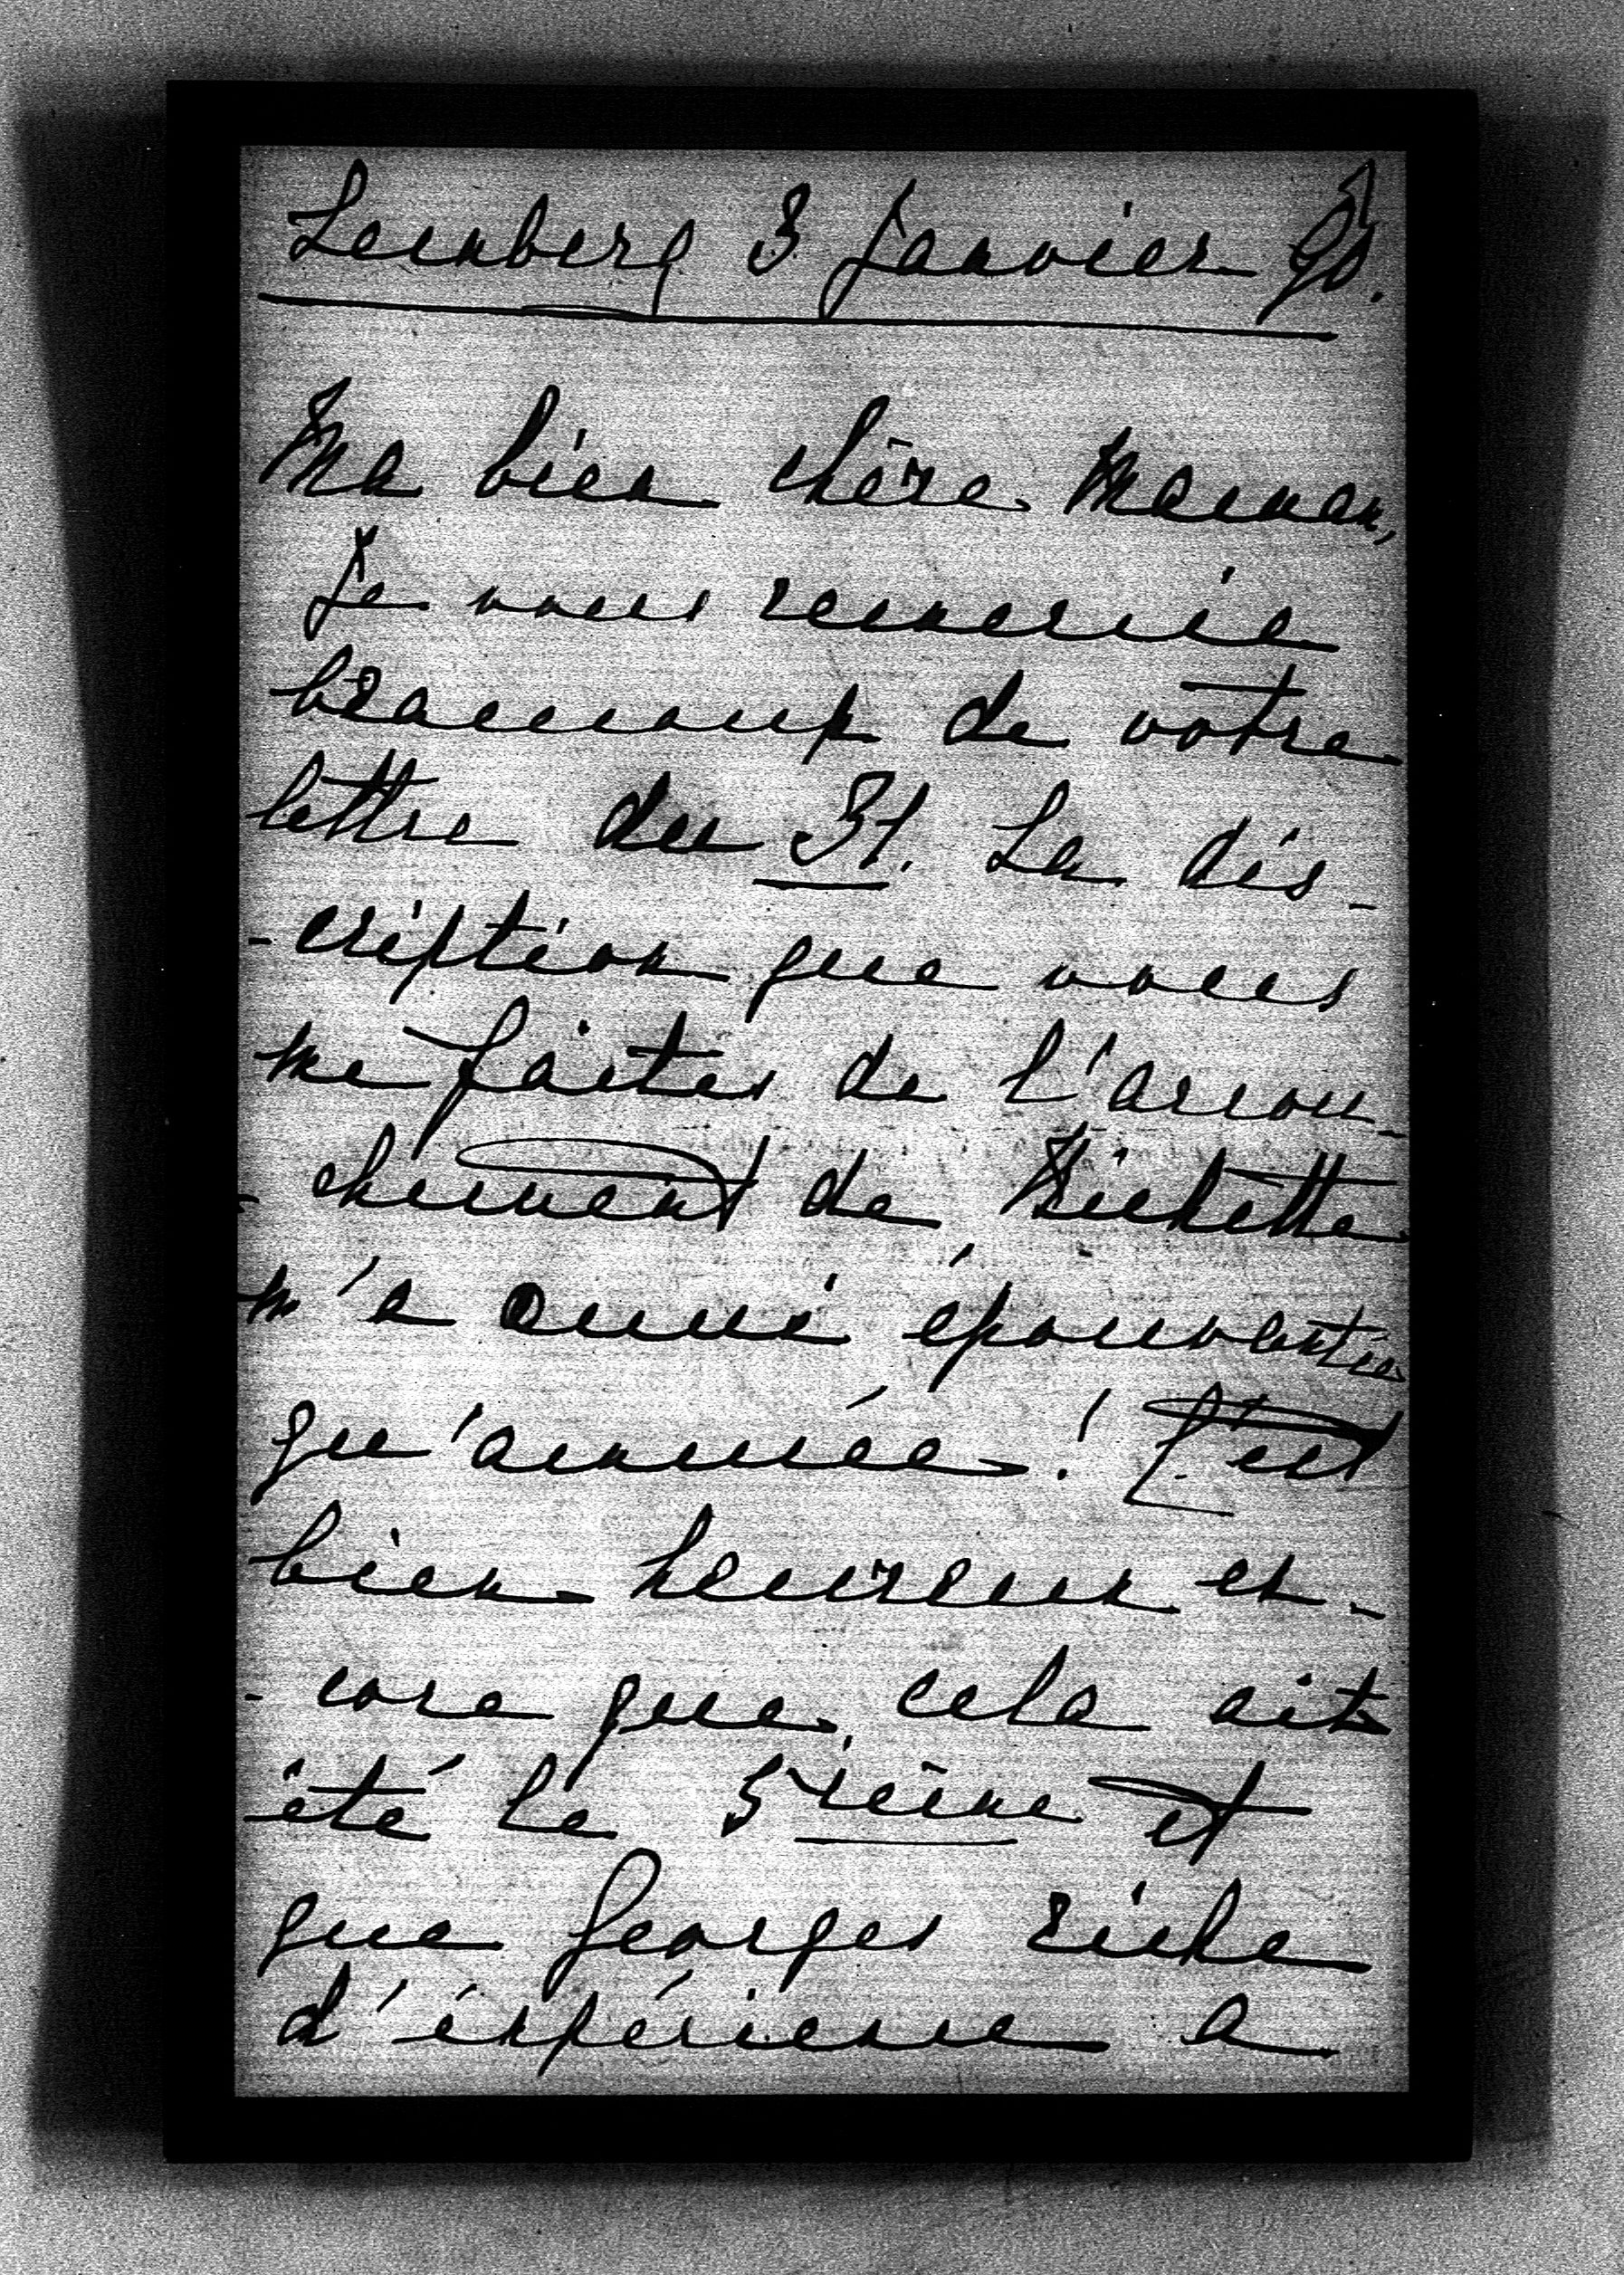 Lemberg 3 Janvier 90.
Ma bien chère Maman,
Je vous remercie
beaucoup de votre
lettre du 31. La dis-
-cription que vous
me faites de l'accou-
-chement de
m'a aussi épouvantée
qu'amusée! C'est
bien heureux en-
-core que cela ait
été le 5ième et
que Georges riche
d'éxpérience a